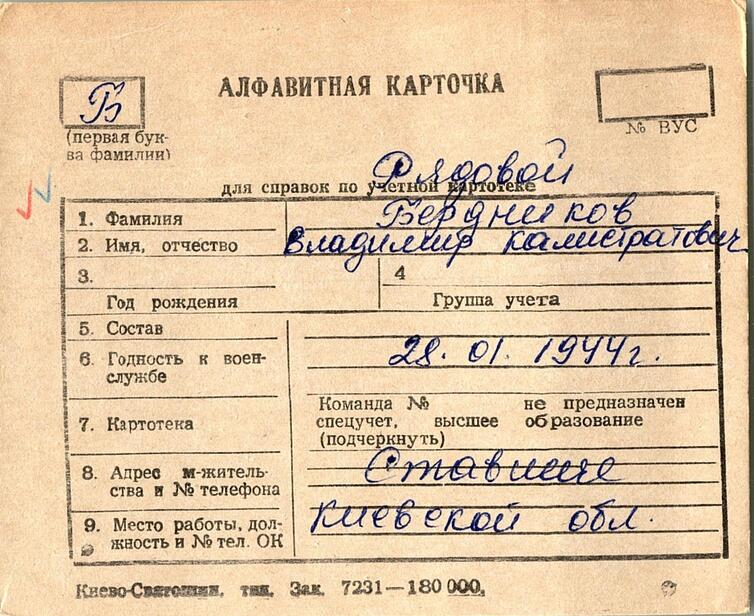 АЛФАВИТНАЯ КАРТОЧКА
Б
(первая бук-
ва фамилии)
№ ВУС
Рядовой
для справок по учетной картотеке
1. Фамилия Бердников
2. Имя, отчество Владимир Калистратович
3.
Год рождения
4
Группа учета
5. Состав
6. Годность к воен-
службе
28.01.1944г.
7. Картотека
Команда № не предназначен
спецучет, высшее образование
(подчеркнуть)
8. Адрес м-житель-
ства и № телефона
Ставище
9. Место работы, дол-
жность и № тел. ОК
Киевской обл.
Киево-Святошин. тип. Зак. 7231—180 000.